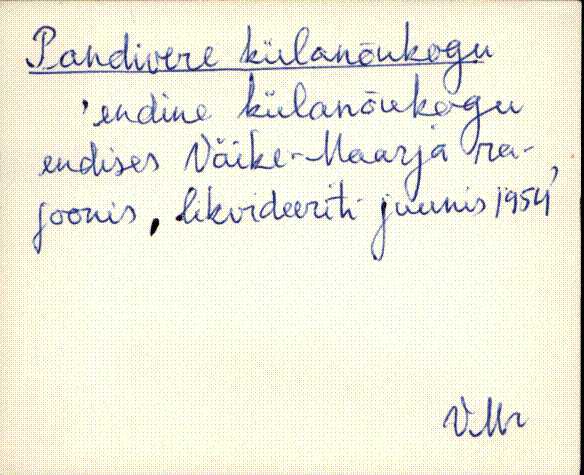 Pandivere külanõukogu
'endine külanõukogu
endises Väike-Maarja ra-
joonis, likvideeriti juunis 1954'
VMr